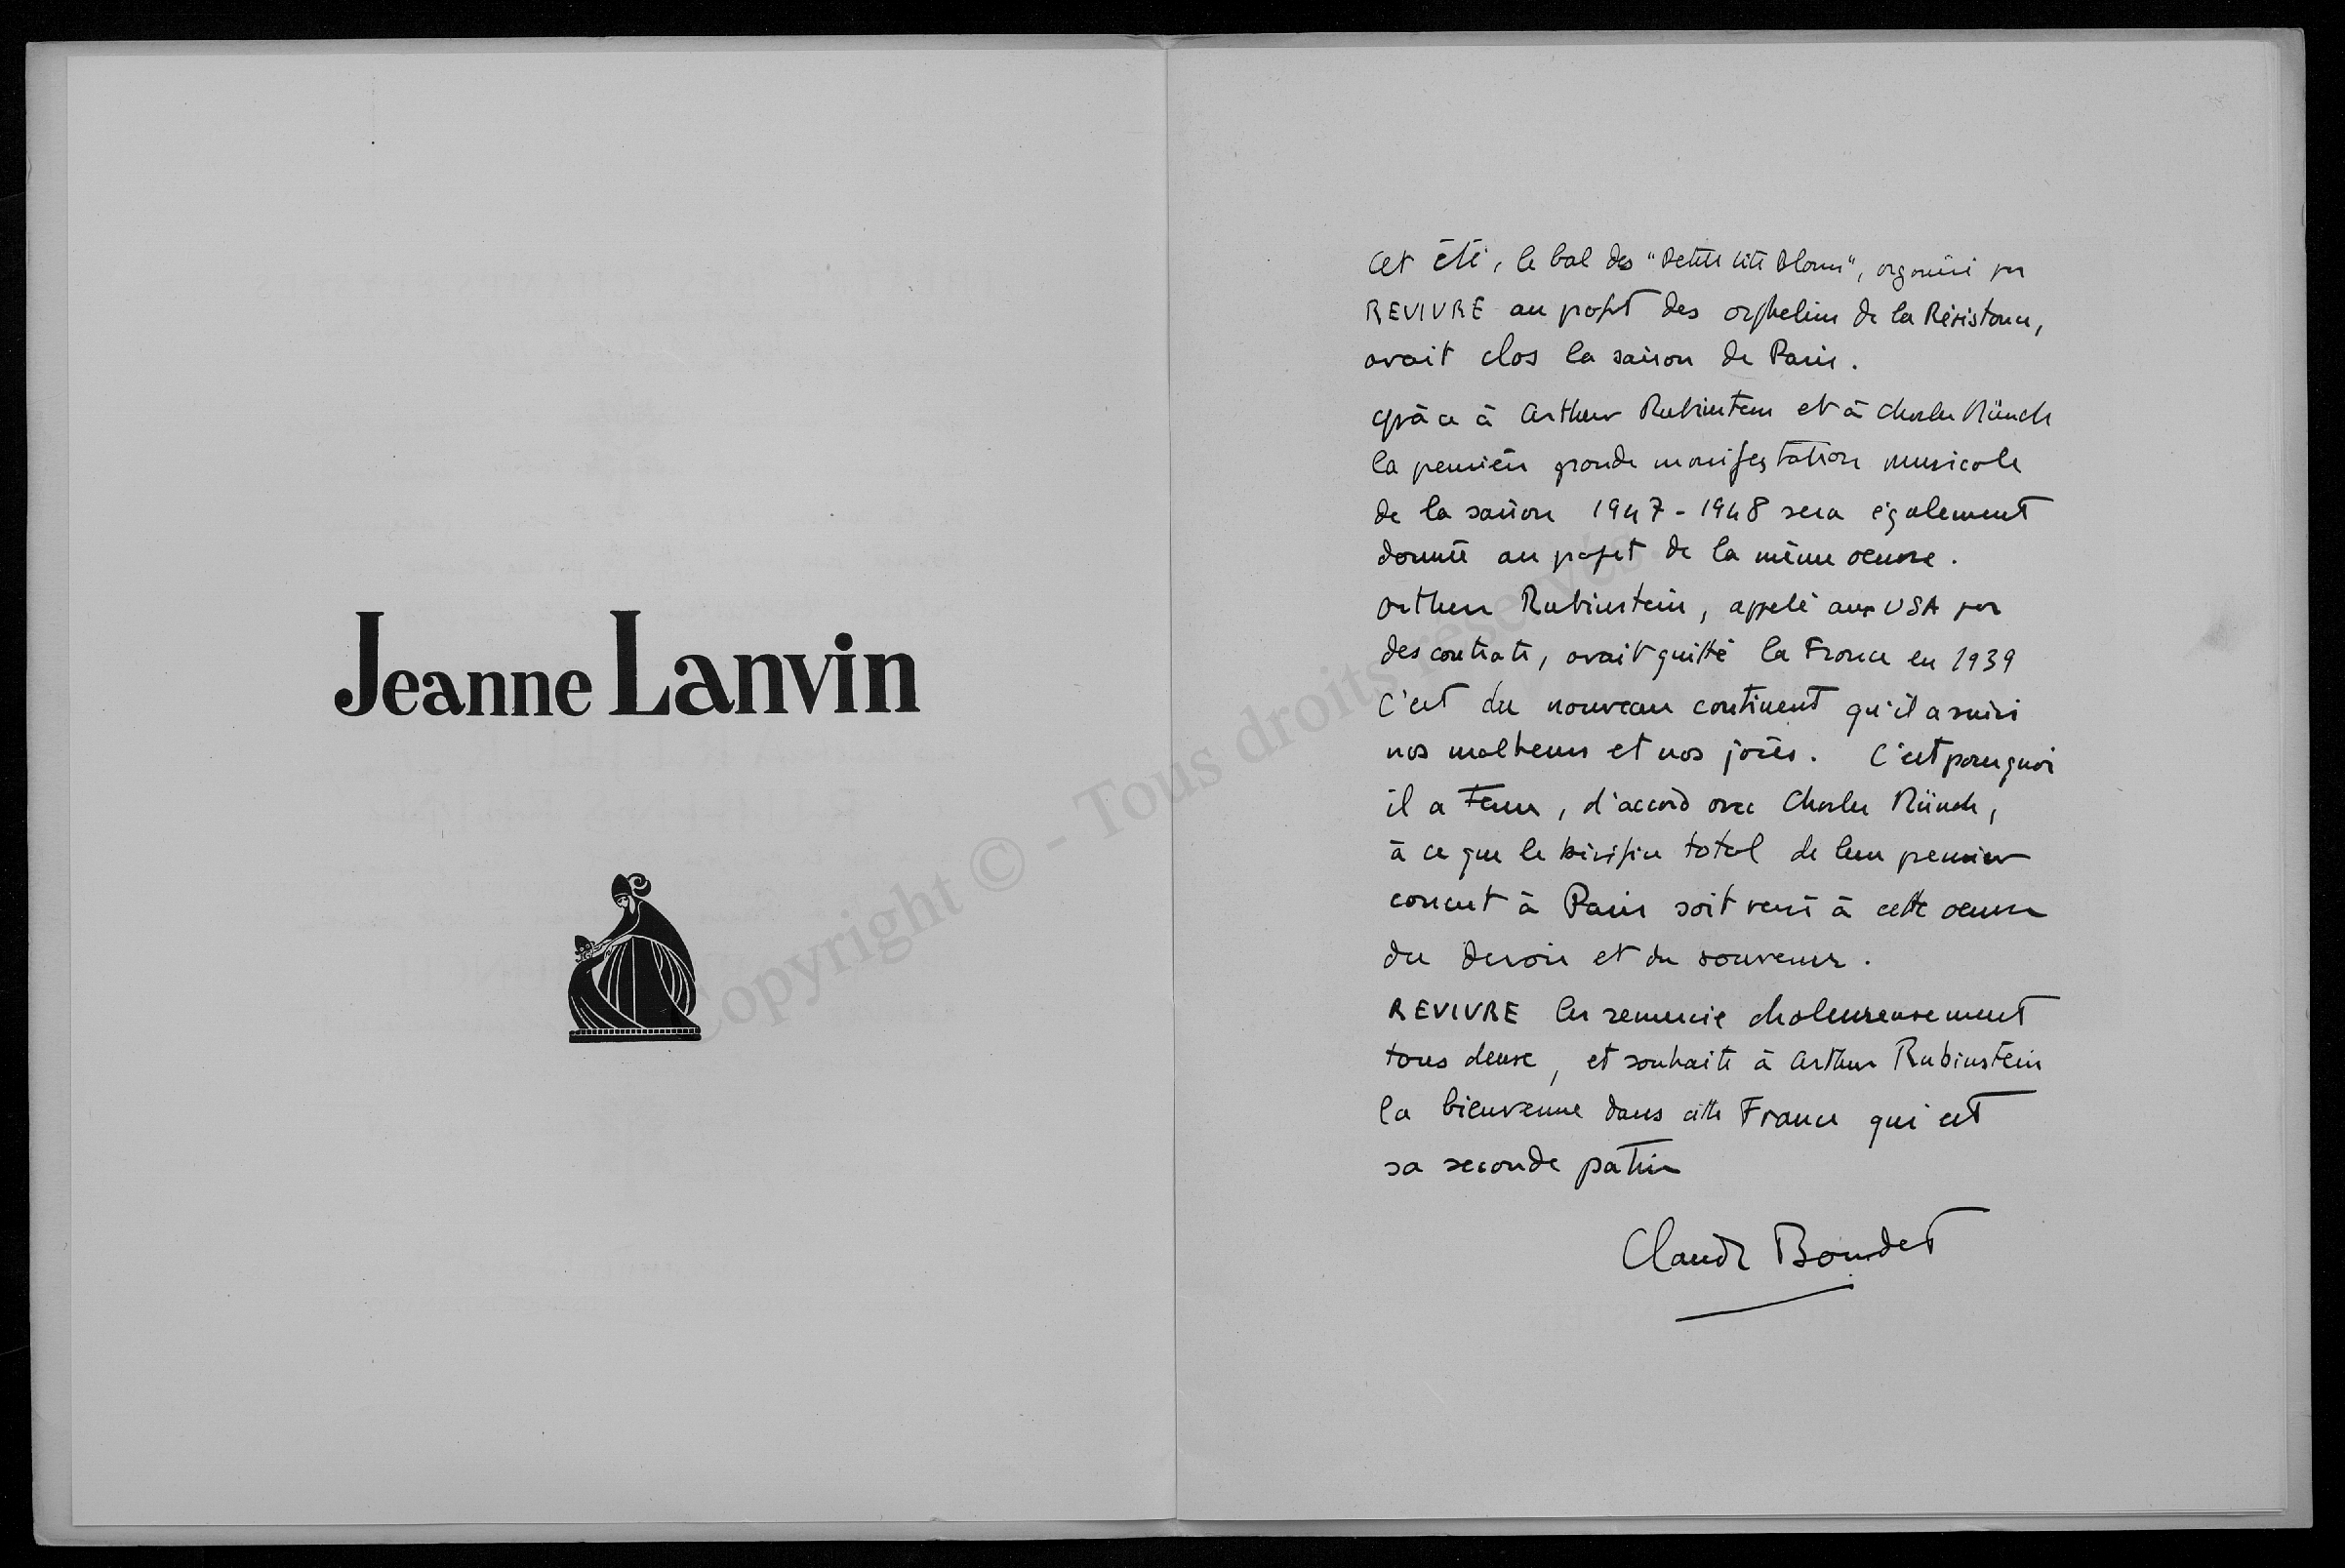 Jeanne Lanvin
Cet été, le bal des "Petits Lits Blancs", organisé par
REVIVRE au profit des orphelins de la Résistance,
avait clos la saison de Paris.
Grâce à Arthur Rubinstein et à Charles Münch
la première grande manifestation musicale
de la saison 1947-1948 sera également
donnée au profit de la même oeuvre.
Arthur Rubinstein, appelé aux USA par
des contrats, avait quitté la France en 1939
C'est du nouveau continent qu'il a suivi
nos malheurs et nos joies. C'est pourquoi
il a tenu, d'accord avec Charles Münch,
à ce que le bénéfice total de leur premier
concert à Paris soit versé à cette oeuvre
du devoir et du souvenir.
REVIVRE les remercie chaleureusement
tous deux, et souhaite à Arthur Rubinstein
la bienvenue dans cette France qui est
sa seconde patrie
Claude Bourdet
Copyright © - Tous droits réservés